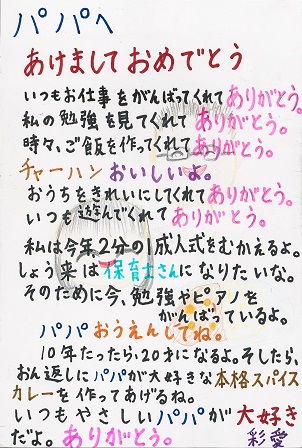 パパへ
あけましておめでとう
いつもお仕事をがんばってくれてありがとう。
私の勉強を見てくれてありがとう。
時々、ご飯を作ってくれてありがとう。
チャーハンおいしいよ。
おうちをきれいにしてくれてありがとう。
いつも遊んでくれてありがとう。
私は今年2分の1成人式をむかえるよ。
しょう来は保育士さんになりたいな。
そのために今、勉強やピアノを
がんばっているよ。
パパおうえんしてね。
10年たったら、20才になるよ。そしたら、
おん返しにパパが大好きな本格スパイス
カレーを作ってあげるね。
いつもやさしいパパが大好き
だよ。ありがとう。彩愛